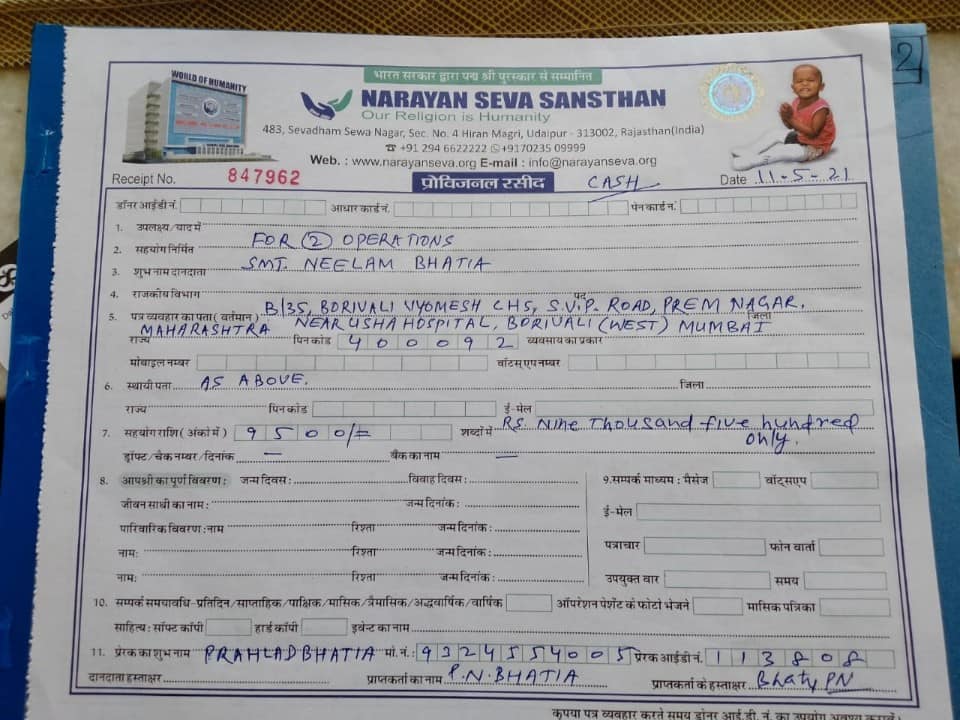 2
WORLD OF HUMANITY
भारत सरकार द्वारा पद्म श्री पुरस्कार से सम्मानित
NARAYAN SEVA SANSTHAN
Our Religion is Humanity
483, Sevadham Sewa Nagar, Sec. No. 4 Hiran Magri, Udaipur - 313002, Rajasthan(India)
+91 294 6622222 +9170235 09999
Web. : www.narayanseva.org E-mail : info@narayanseva.org
Receipt No. 847962 प्रोविजनल रसीद CASH Date 11-5-21
डॉनर आईडी नं. आधार कार्ड नं. पेन कार्ड नं.
1. उपलक्ष्य/याद में
2. सहयोग निर्मित FOR 2 OPERATIONS
3. शुभ नाम दानदाता SMT. NEELAM BHATIA
4. राजकीय विभाग पद
5. पत्र व्यवहार का पता (वर्तमान) B/35, BORIVALI VYOMESH CHS, S.V.P. ROAD, PREM NAGAR. जिला
राज्य MAHARASHTRA NEAR USHA HOSPITAL, BORIVALI (WEST) MUMBAI
पिन कोड 400092 व्यवसाय का प्रकार
मोबाईल नम्बर वॉटस्एप नम्बर
6. स्थायी पता AS ABOVE. जिला
राज्य पिन कोड ई-मेल
7. सहयोग राशि (अंको में) 9500/= शब्दों में RS. Nine Thousand five hundred only.
ड्रॉफ्ट/चैक नम्बर/दिनांक — बैंक का नाम —
8. आपश्री का पूर्ण विवरण: जन्म दिवस: विवाह दिवस: 9.सम्पर्क माध्यम : मैसेज वॉट्सएप
जीवन साथी का नाम: जन्म दिनांक: ई-मेल
पारिवारिक विवरण:नाम रिश्ता जन्म दिनांक: पत्राचार फोन वार्ता
नाम: रिश्ता जन्म दिनांक:
नाम: रिश्ता जन्म दिनांक: उपयुक्त वार समय
10. सम्पर्क समयावधि-प्रतिदिन/साप्ताहिक/पाक्षिक/मासिक/त्रैमासिक/अद्धवार्षिक/वार्षिक ऑपरेशन पेशेंट के फोटो भेजने मासिक पत्रिका
साहित्य: सॉफ्ट कॉपी हार्ड कॉपी इवेन्ट का नाम
11. प्रेरक का शुभ नाम PRAHLAD BHATIA मो. नं.: 9324554005 प्रेरक आईडी नं. 113808
दानदाता हस्ताक्षर प्राप्तकर्ता का नाम P.N. BHATIA प्राप्तकर्ता के हस्ताक्षर Bhaty PN
कृपया पत्र व्यवहार करते समय डॉनर आई.डी. नं. का उपयोग अवश्य करावें